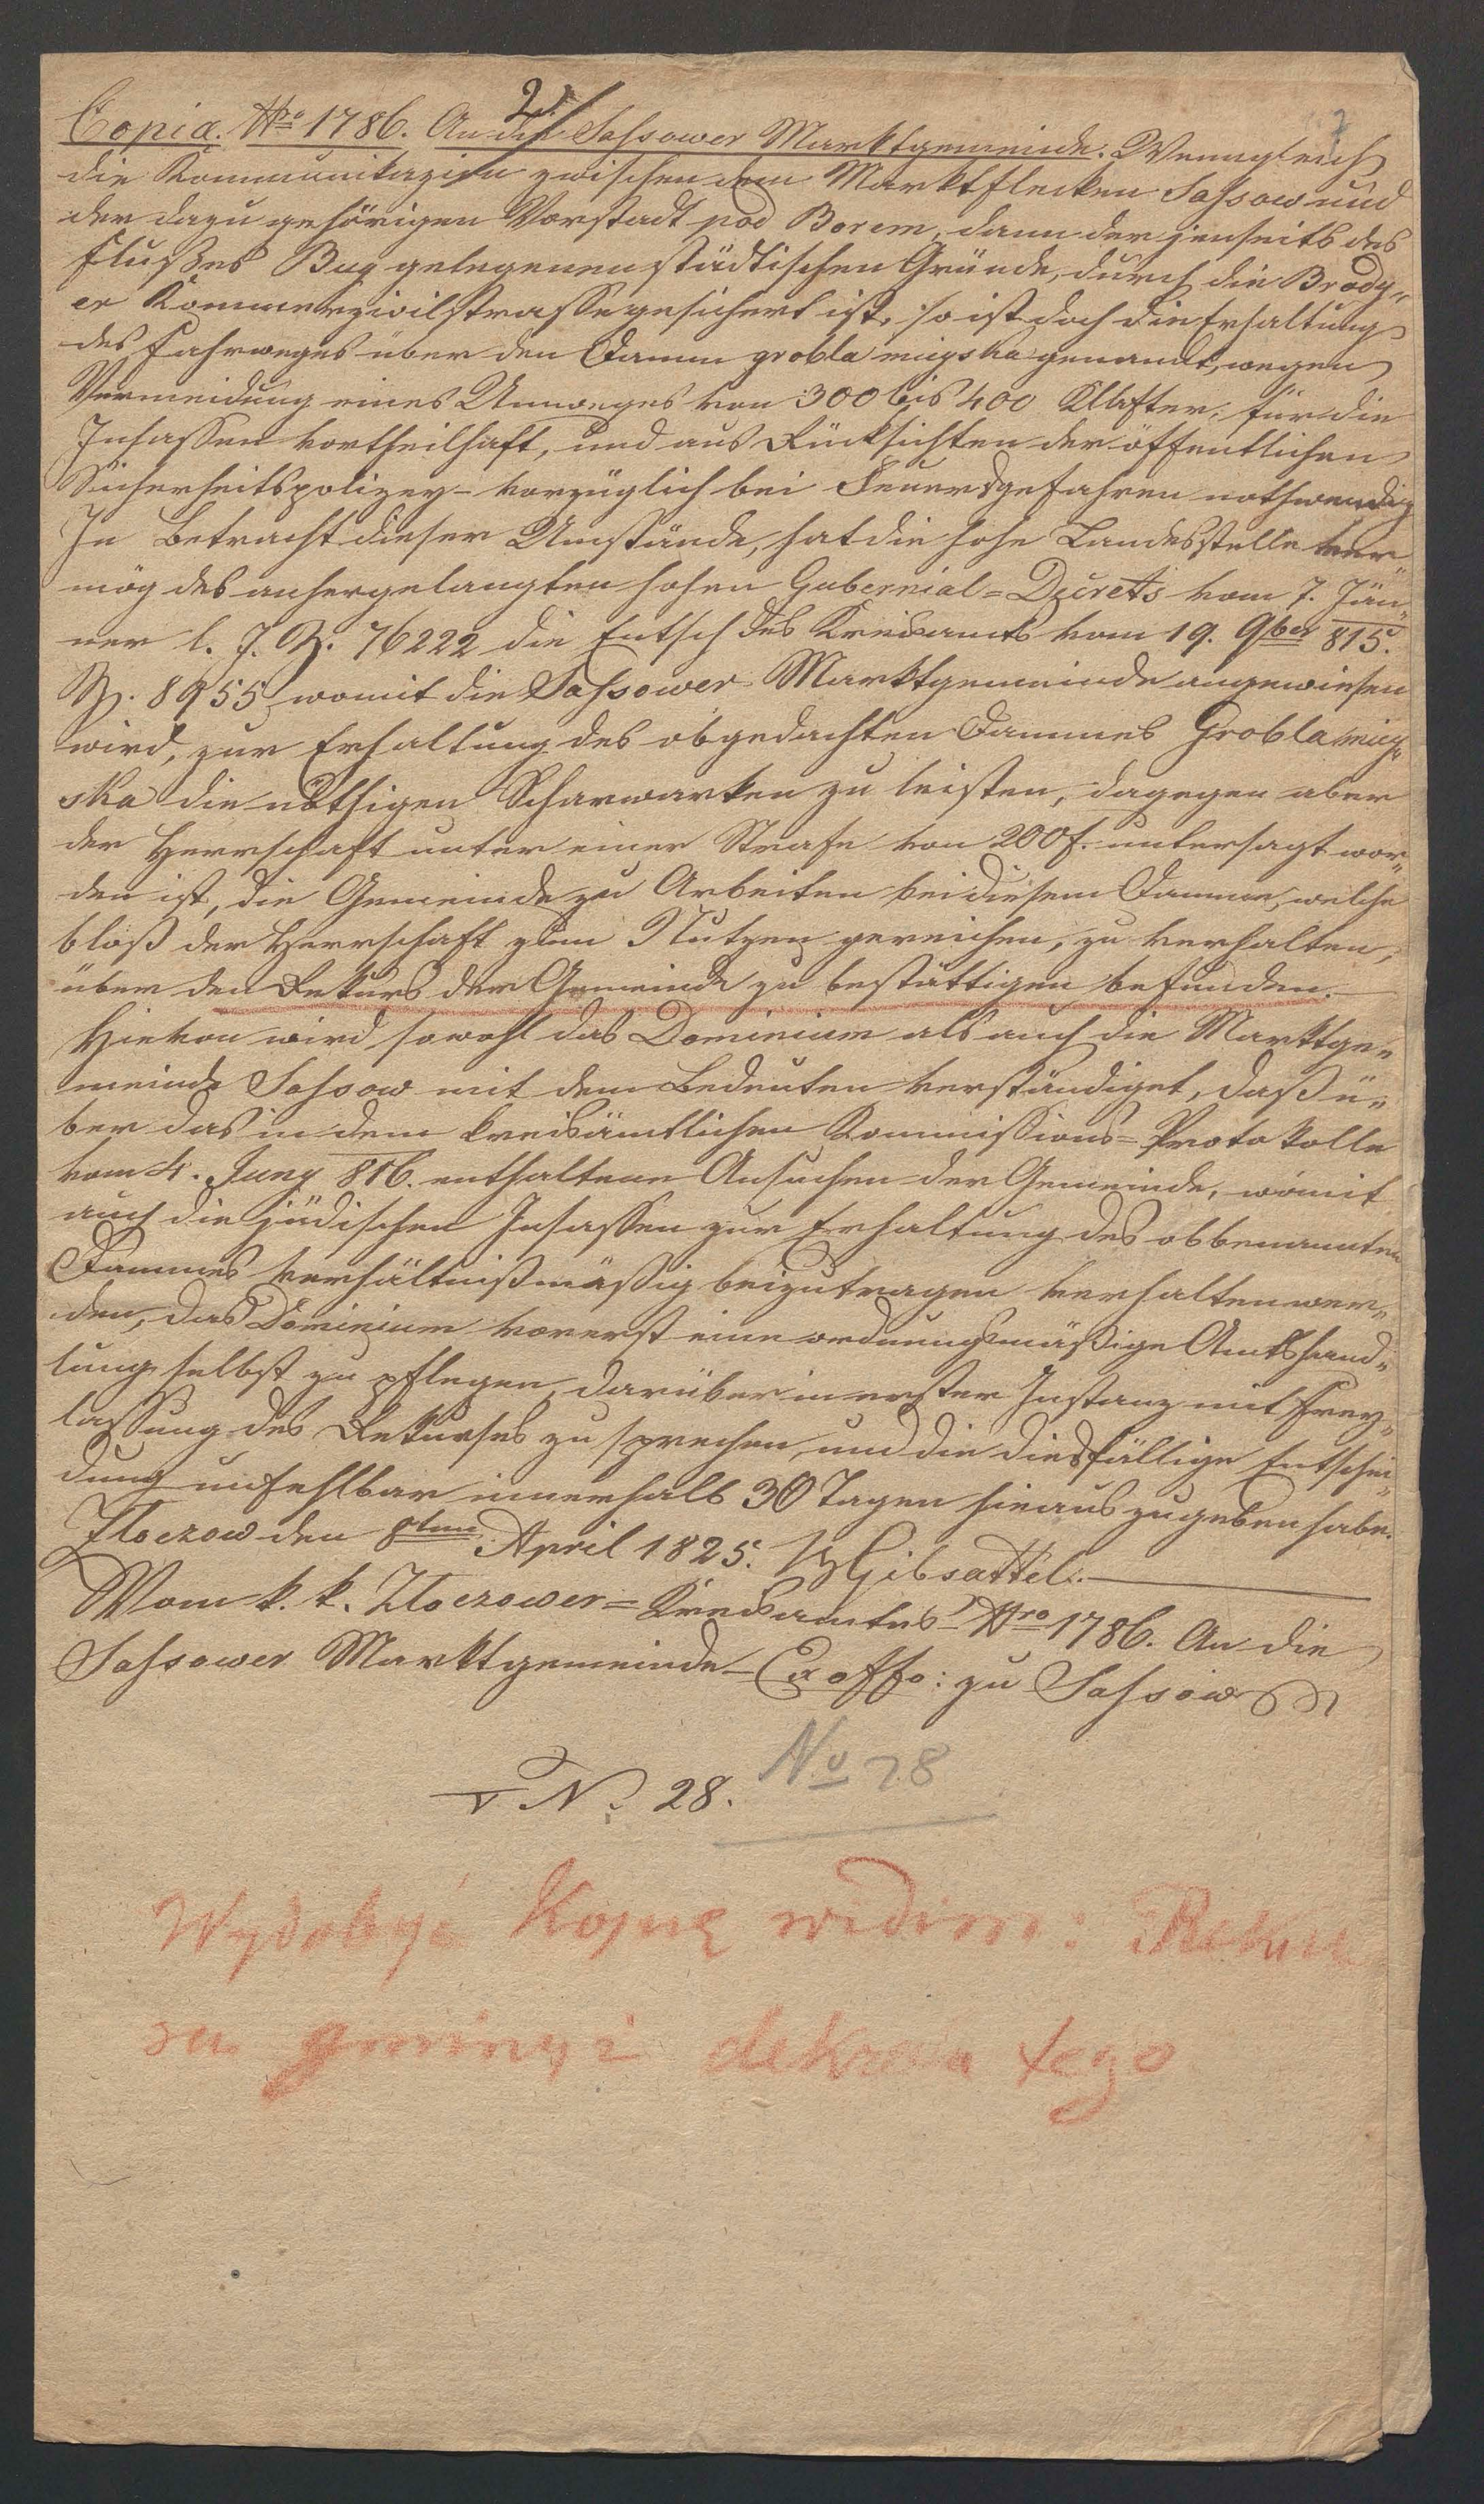 2.
Copia. Nro 1786. An die Sassower Marktgemeinde. Wenngleich
die Kommunikazion zwischen dem Marktflecken Sassow und
der dazu gehörigen Vorstadt pod Borem, dann der jenseits des
Flußes Bug gelegenen städtischen Gründe, durch die Brody„
er Kommerzialstrasse gesichert ist, so ist doch die Erhaltung
des Fahrweges über den Damm grobla mieyska genandt, wegen
Vermeidung eines Umweges von 300 bis 400 Klafter, für die
Insassen vortheilhaft, und aus Rücksichten der öffentlichen
Sicherheitspolizey – vorzüglich bei Feuersgefahren nothwendig
In Betracht dieser Umstände, hat die hohe Landesstelle ver„
mög des anhergelangten hohen Gubernial=Decrets vom 7. Jän„
ner l. J. Z. 76222 die Entsch des Kreisamts vom 19. 9ber 815.
Z. 8955 womit die Sassower Marktgemeinde angewiesen
wird, zur Erhaltung des obgedachten Dammes Grobla miey„
ska die nöthigen Scharwarken zu leisten, dagegen aber
der Herrschaft unter einer Strafe von 200 f. untersagt wor„
den ist, die Gemeinde zu Arbeiten bei diesem Damme, welche
bloß der Herrschaft zum Nutzen gereichen, zu verhalten,
über den Rekurs der Gemeinde zu bestättigen befunden.
Hievon wird sowohl das Dominium als auch die Marktge„
meinde Sassow mit dem Bedeuten verständiget, daß ü„
ber das in dem kreisämtlichen Kommissions=Protokolle
vom 4. Juny 816. enthaltene Ansuchen der Gemeinde, womit
auch die jüdischen Insassen zur Erhaltung des obbenannten
Dammes verhältnißmäßig beizutragen verhalten wer„
den, das Dominium vorerst eine ordnungsmäßige Amtshand„
lung selbst zu pflegen, darüber in erster Instanz mit Frey„
lassung des Rekurses zu sprechen, und die diesfällige Entschei„
dung unfehlbar innerhalb 30 Tagen hinaus zu geben habe.
Zloczow den 8ten April 1825. Gibsattel.
Vom k. k. Zloczower=Kreisamtes Nro 1786. An die
Sassower Marktgemeinde – Ex offo: zu Sassow
No 28. No 28
Wydobyć Kopię widim: Rekur
su gminy i dekretu tego